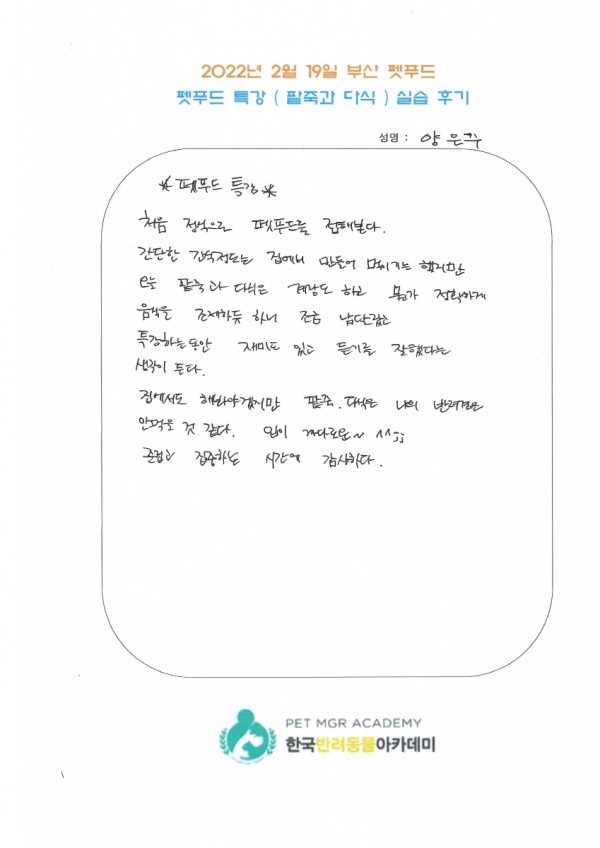 2022년 2월 19일 부산 펫푸드
펫푸드 특강 ( 팥죽과 다식 ) 실습 후기
성명 : 양은주
* 펫푸드 특강 *
처음 정식으로 펫푸드를 접해본다.
간단한 간식정도는 집에서 만들어 먹이기는 했지만
오늘 팥죽과 다식은 계량도 하고 뭔가 정확하게
음식을 조제하듯 하니 조금 남달랐고
특강하는동안 재미도 있고 듣기를 잘했다는
생각이 든다.
집에서도 해봐야겠지만 팥죽.다식은 나의 반려견은
안먹을 것 같다. 입이 까다로운~ ^^;;
즐겁고 집중하는 시간에 감사하다.
PET MGR ACADEMY
한국반려동물아카데미